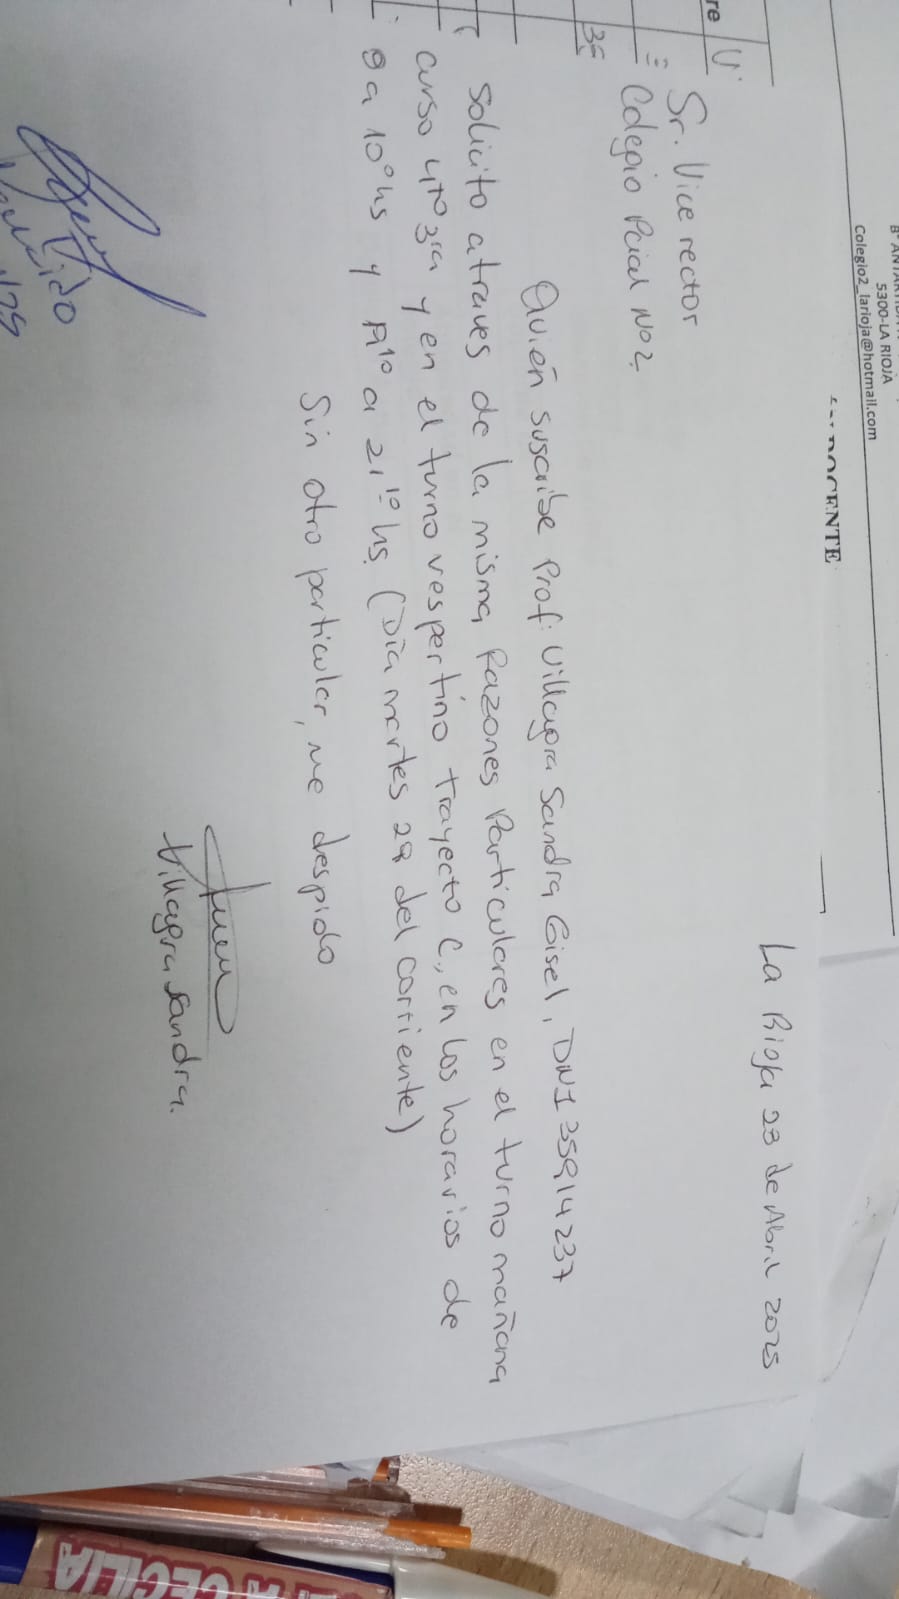 5300-LA RIOJA
Colegio2_larioja@hotmail.com
DOCENTE
re
La Rioja 23 de Abril 2025
Sr. Vice rector
Colegio Pcial Nº2.
Quién suscribe Prof: Villagra Sandra Gisel, DNI 35914237
Solicito a traves de la misma Razones Particulares en el turno mañana
curso 4to 3ra y en el turno vespertino trayecto C, en los horarios de
9 a 10º hs y 19¹⁰ a 21¹⁰ hs. (Día martes 29 del corriente)
Sin otro particular, me despido
Villagra Sandra.
CECILIA